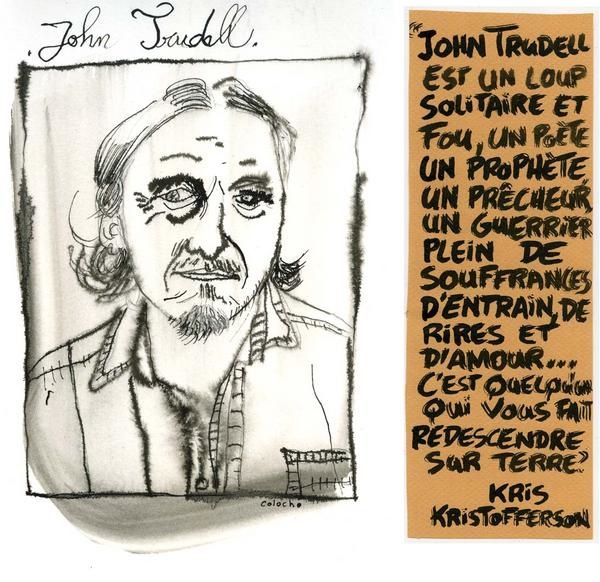 John Trudell.
colocho
"JOHN TRUDELL
EST UN LOUP
SOLITAIRE ET
FOU, UN POÈTE
UN PROPHÈTE,
UN PRÊCHEUR,
UN GUERRIER
PLEIN DE
SOUFFRANCES
D'ENTRAIN, DE
RIRES ET
D'AMOUR...
C'EST QUELQU'UN
QUI VOUS FAIT
REDESCENDRE
SUR TERRE"
KRIS
KRISTOFFERSON